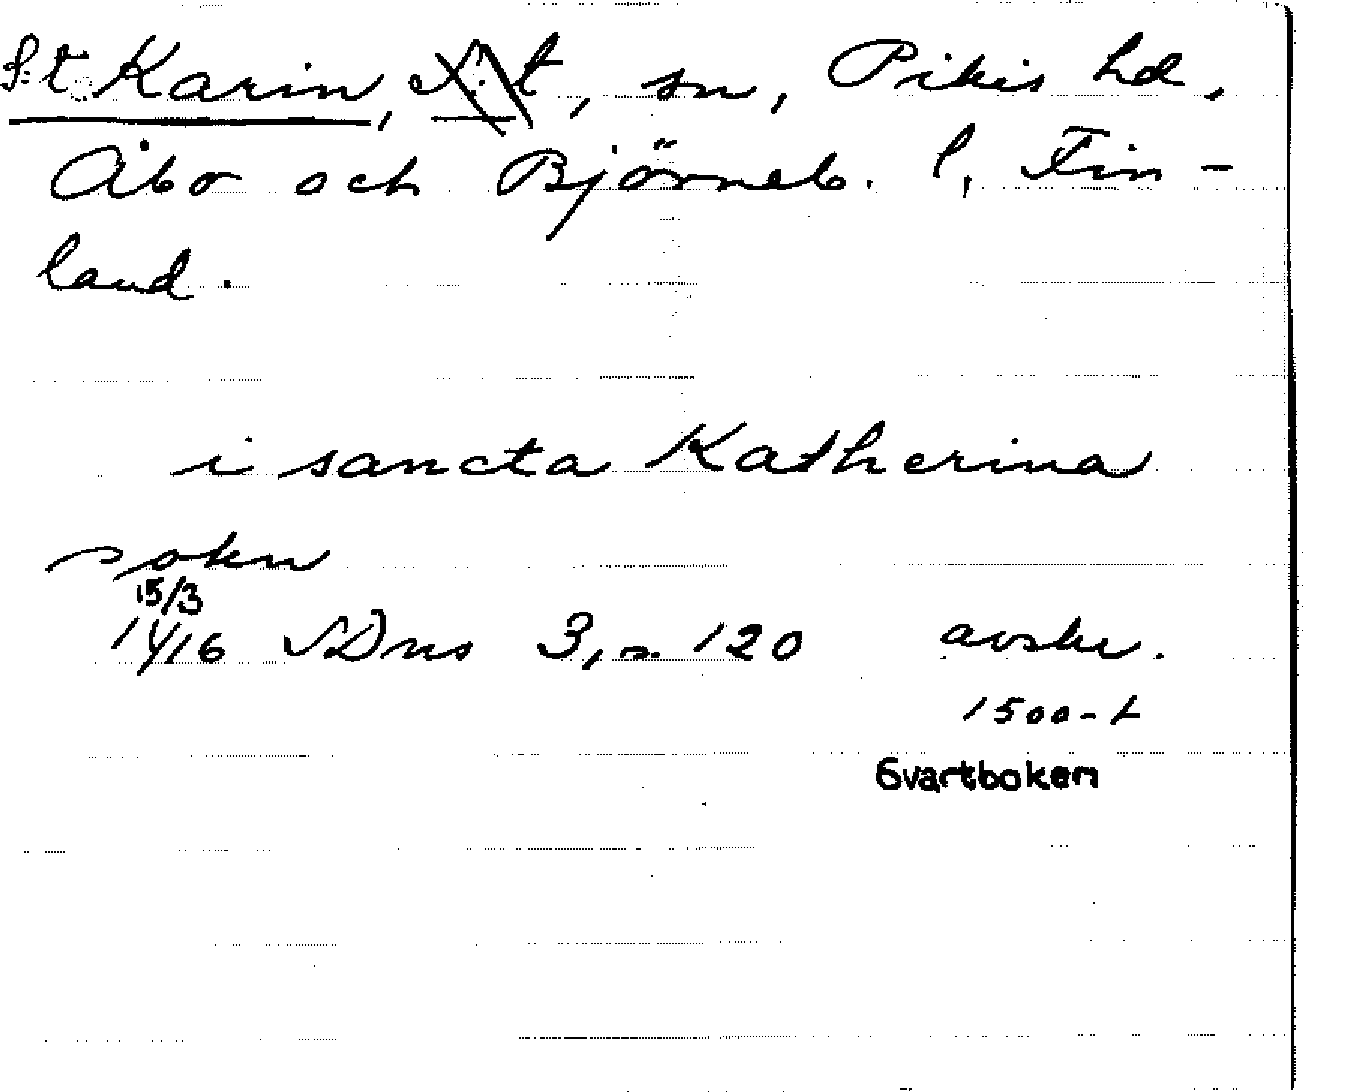 St Karin, S:t, sn, Pikis hd,
Åbo och Björneb. l, Fin-
land.
i sancta Katherina
sokn
15/3
1416 SDns 3, s. 120 avskr.
1500-t
Svartboken